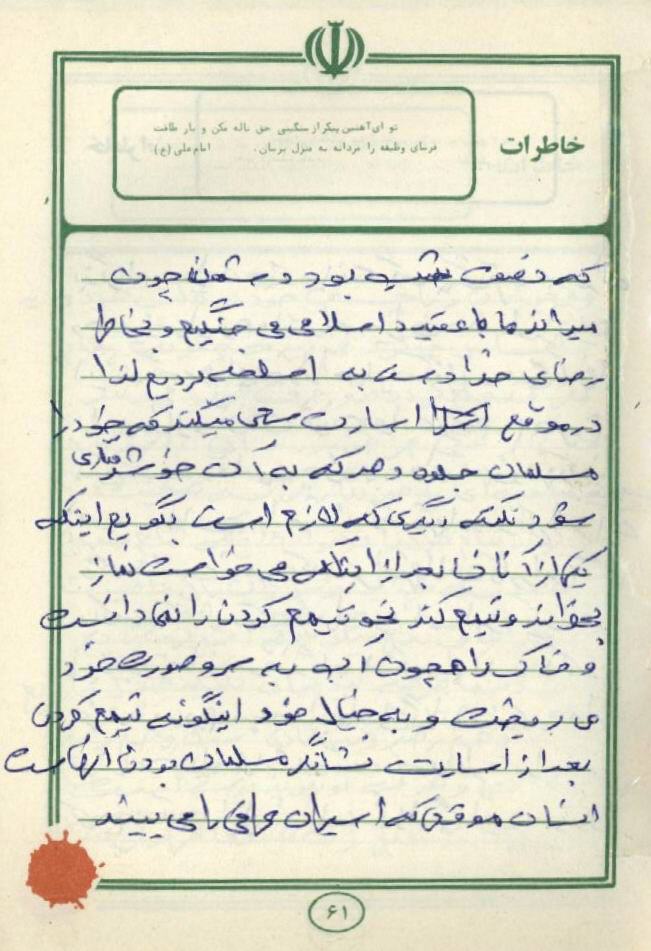 تو ای آهنین پیکر از سنگینی حق ناله مکن و بار طاقت
خاطرات
فرسای وظیفه را مردانه به منزل برسان. امام علی (ع)
که دقیقت بود دشمن چون
میداند ما با عقیده اسلامی می جنگیم و بخاطر
رضای خدا دست به اسلحه بردیم لذا
در موقع اسارت سعی میکند که خود را
مسلمان جلوه دهد که به آن خوش رفتاری
شود نکته دیگری که لازم است بگویم اینکه
یکی از آنان بعد از اینکه می خواست نماز
بخواند و تیمم کند نحو تیمم کردن را نمیدانست
و خاک را همچون آب به سر و صورت خود
می ریخت و به خیال خود اینگونه تیمم کردن
بعد از اسارت نشانگر مسلمان بودن آنهاست
انسان موقعی که اسیران عراقی را می بیند
۶۱